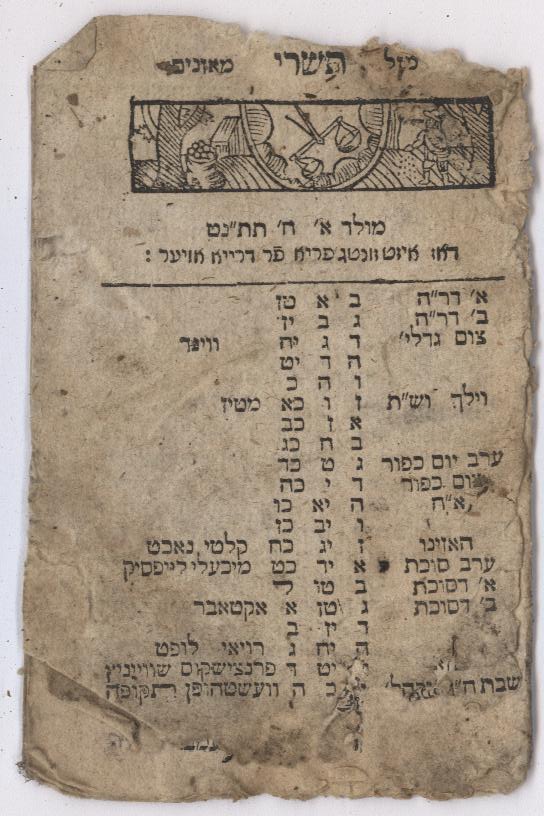 מזל תשרי מאזנים
מולד א׳ ח׳ תת״נט
דאז איזט זונטג פריא פר דרייא אויער :
א׳ דר״ה ב א טז
ב׳ דר״ה ג ב יז
צום גדלי׳ ד ג יח ווינד
ה ד יט
ו ה כ
וילך וש״ת ז ו כא מטיז
א ז כב
ב ח כג
ערב יום כפור ג ט כד
יום כפור ד י כה
א״ח ה יא כו
ו יב כז
האזינו ז יג כח קלטי נאכט
ערב סוכת א יד כט מיכעלי לייפסיק
א׳ דסוכת ב טו ל
ב׳ דסוכת ג טז א אקטאבר
ד יז ב
ה יח ג רויאי לופט
יט ד פרנצישקוס שווייניץ
שבת ח״ה כ ה וועשטהופן התקופה